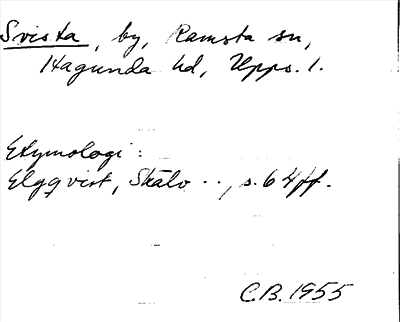 Svista, by, Ramsta sn,
Hagunda hd, Upps. l.
Etymologi:
Elgqvist, Skälv..., s. 64 ff.
C.B. 1955